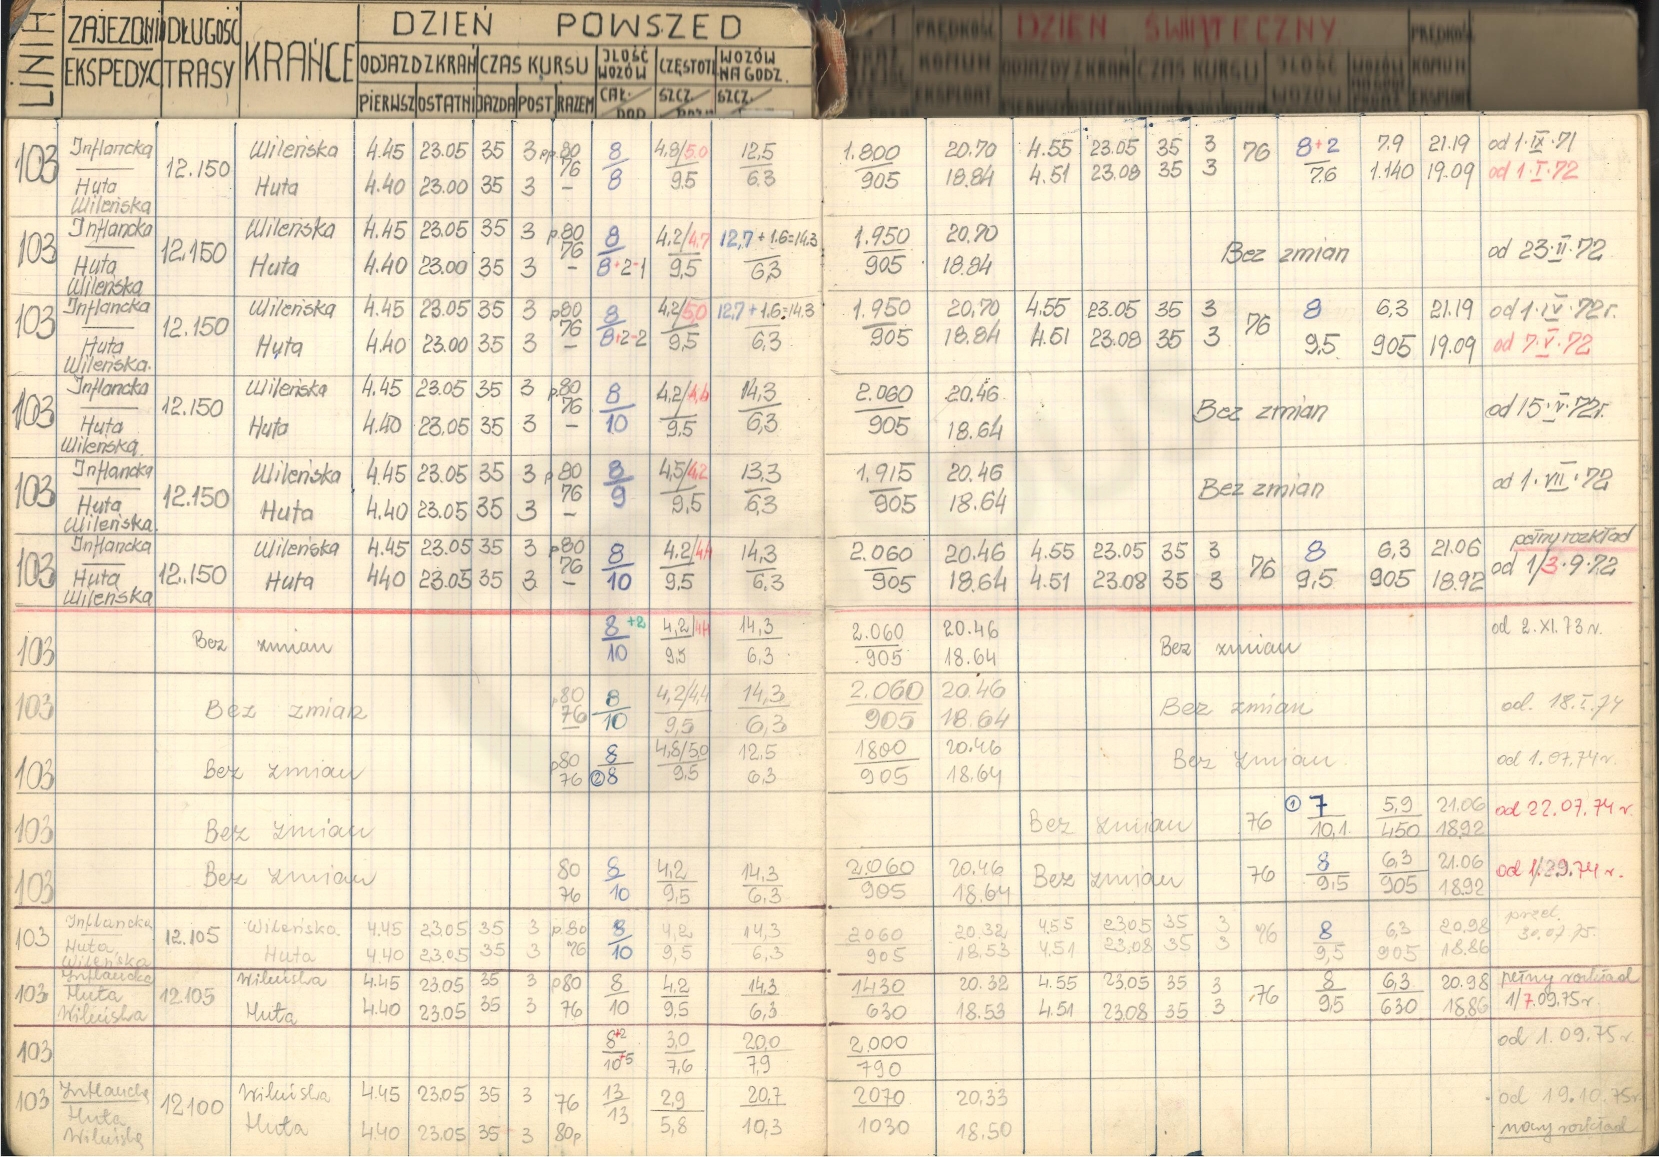 LINIA ZAJEZDNI EKSPEDYC DŁUGOŚĆ TRASY KRAŃCE DZIEŃ POWSZED
ODJAZD Z KRAŃ CZAS KURSU ILOŚĆ WOZÓW CZĘSTOTL WOZÓW NA GODZ.
PIERWSZ OSTATNI JAZDA POST RAZEM CAŁ. POP. SZCZ. SZCZ.
DZIEŃ ŚWIĄTECZNY
PRĘDKOŚĆ KOMUN EKSPLOAT ODJAZDY Z KRAN CZAS KURSU ILOŚĆ WOZÓW PRĘDKOŚ KOMUN EKSPLOA
103 Inflancka 12.150 Wileńska 4.45 23.05 35 3 pp.80 8 4.8/5.0 12,5 1.800 20.70 4.55 23.05 35 3 76 8+2 7.9 21.19 od 1·IX·71
Huta Wileńska Huta 4.40 23.00 35 3 76 – 8 9.5 6.3 905 18.84 4.51 23.08 35 3 7.6 1.140 19.09 od 1·I·72
103 Inflancka 12.150 Wileńska 4.45 23.05 35 3 p.80 8 4.2/4.7 12,7+1.6=14.3 1.950 20.70 Bez zmian od 23·II·72
Huta Wileńska Huta 4.40 23.00 35 3 76 – 8+2-1 9,5 6,3 905 18.84
103 Inflancka 12.150 Wileńska 4.45 23.05 35 3 p80 8 4,2/5,0 12,7+1.6=14.3 1.950 20,70 4.55 23.05 35 3 76 8 6,3 21.19 od 1·IV·72r.
Huta Wileńska. Huta 4.40 23.00 35 3 76 – 8+2-2 9,5 6,3 905 18.84 4.51 23.08 35 3 9,5 905 19.09 od 7·V·72
103 Inflancka 12.150 Wileńska 4.45 23.05 35 3 p.80 8 4,2/4,4 14,3 2.060 20.46 Bez zmian od 15·V·72r.
Huta Wileńska. Huta 4.40 23.05 35 3 76 – 10 9.5 6,3 905 18.64
103 Inflancka 12.150 Wileńska 4.45 23.05 35 3 p80 8 4,5/4.2 13,3 1.915 20.46 Bez zmian od 1·VII·72
Huta Wileńska. Huta 4.40 23.05 35 3 76 – 9 9,5 6,3 905 18.64
103 Inflancka 12.150 Wileńska 4.45 23.05 35 3 p80 8 4.2/4,4 14,3 2.060 20.46 4.55 23.05 35 3 76 8 6,3 21.06 pełny rozkład
Huta Wileńska Huta 440 23.05 35 3 76 – 10 9,5 6,3 905 18.64 4.51 23.08 35 3 9,5 905 18.92 od 1/3·9·72
103 Bez zmian 8+2 4,2/4,4 14,3 2.060 20.46 Bez zmian od 2.XI.73 r.
10 9,5 6,3 905 18.64
103 Bez zmian p80 8 4,2/4,4 14,3 2.060 20.46 Bez zmian od. 18.I.74
76 10 9,5 6,3 905 18.64
103 Bez zmian p80 8 4,8/5,0 12,5 1800 20.46 Bez zmian od 1.07.74 r.
76 ②8 9,5 6,3 905 18.64
103 Bez zmian Bez zmian 76 ① 7 5,9 21.06 od 22.07.74 r.
10,1. 450 18.92
103 Bez zmian 80 8 4,2 14,3 2.060 20.46 Bez zmian 76 8 6,3 21.06 od 1/29.74 r.
76 10 9,5 6,3 905 18.64 9,5 905 18.92
103 Inflancka 12.105 Wileńska 4.45 23.05 35 3 p.80 8 4,2 14,3 2060 20.32 4.55 23.05 35 3 76 8 6,3 20.98
Huta Wileńska Huta 4.40 23.05 35 3 76 10 9,5 6,3 905 18.53 4.51 23.08 35 3 9,5 905 18.86
103 Inflancka 12.105 Wileńska 4.45 23.05 35 3 p80 8 4,2 14,3 1430 20.32 4.55 23.05 35 3 76 8 6,3 20.98 pełny rozkład
Huta Wileńska Huta 4.40 23.05 35 3 76 10 9,5 6,3 630 18.53 4.51 23.08 35 3 9,5 630 18.86 1/7.09.75 r.
103 8+2 3,0 20,0 2.000 od 1.09.75 r.
10+5 7,6 7,9 790
103 Inflancka 12100 Wileńska 4.45 23.05 35 3 76 13 2,9 20,7 2070 20,33 od 19.10.75r
Huta Wileńska Huta 4.40 23.05 35 3 80p 13 5,8 10,3 1030 18.50 nowy rozkład